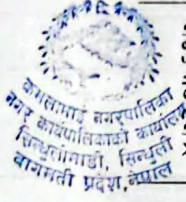 कमलामाई नगरपालिका
नगर कार्यपालिकाको कार्यालय
सिन्धुलीमाडी, सिन्धुली
बागमती प्रदेश, नेपाल